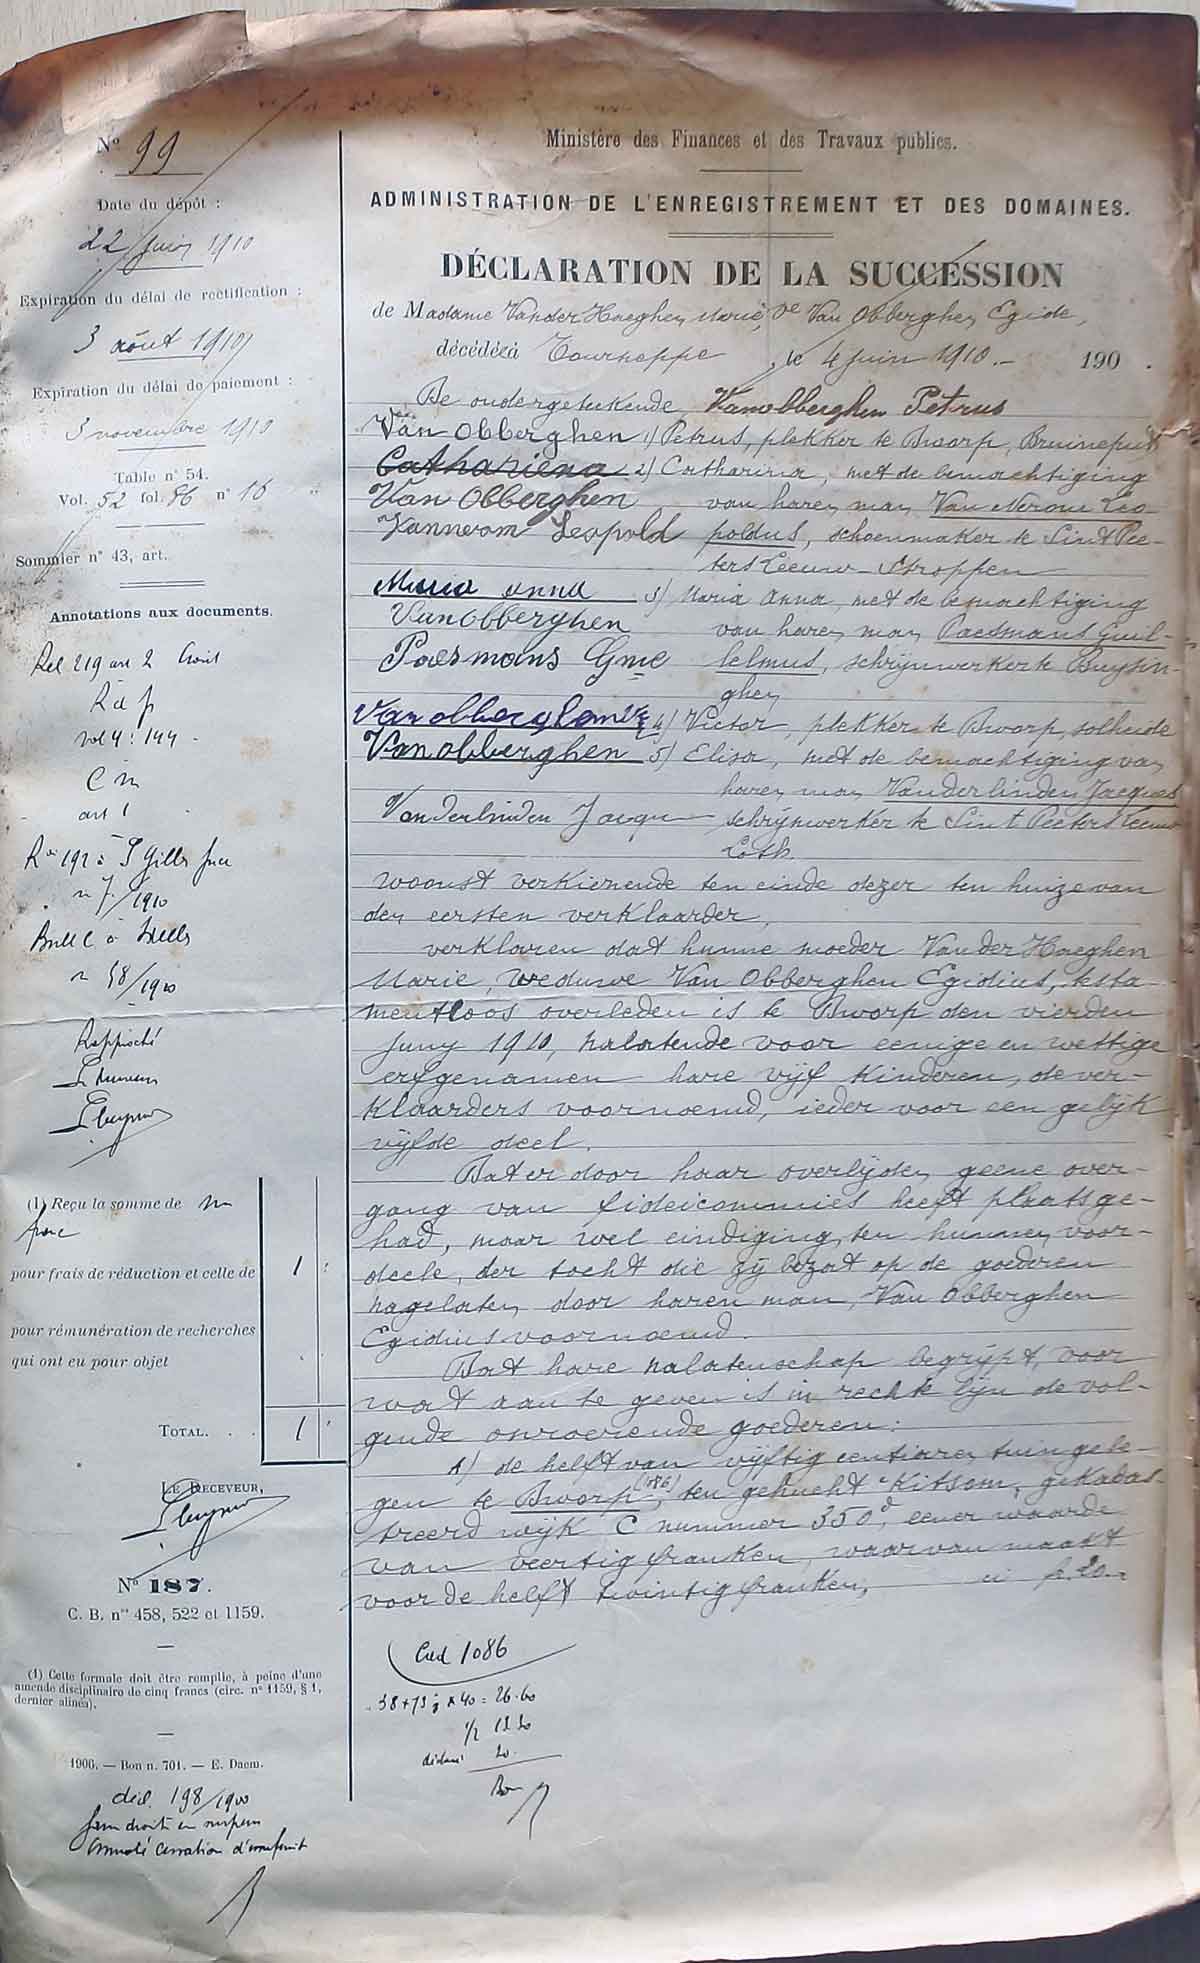 N° 99
Date du dépôt :
22 juin 1910
Expiration du délai de rectification :
3 août 1910
Expiration du délai de paiement :
3 novembre 1910
Table n° 54.
Vol. 52 fol. 86 n° 16
Sommier n° 43, art.
Annotations aux documents.
Rel 219 art 2
vol 4 : 144
art 1
Rappioché
(1) Reçu la somme de un
franc
pour frais de réduction et celle de 1
pour rémunération de recherches
qui ont eu pour objet
TOTAL. . . 1
LE RECEVEUR,
N° 187.
C. B. nos 458, 522 et 1159.
(1) Cette formule doit être remplie, à peine d'une
amende disciplinaire de cinq francs (circ. n° 1159, § 1,
dernier alinéa).
1906. — Bon n. 701. — E. Daem.
décl. 198/1900
Ministère des Finances et des Travaux publics.
ADMINISTRATION DE L'ENREGISTREMENT ET DES DOMAINES.
DÉCLARATION DE LA SUCCESSION
de Madame Vander Haeghen Marie, Ve Van Obberghen Egide,
décédée à Tourneppe, le 4 juin 1910.- 190 .
De ondergeteekende Vanobberghen Petrus
Van Obberghen 1) Petrus, plekker te Bworp, Bruineput
Cathariena 2) Catharina, met de bemachtiging
Van Obberghen van haren man Van Nerom Leo-
Vannerom Leopold poldus, schoenmaker te Sint Pee-
ters Leeuw Stroppen
Maria anna 3) Maria Anna, met de bemachtiging
Vanobberghen van haren man Paesmans Guil-
Paesmans Gme lelmus, schrijnwerker te Buysin-
ghen
4) Victor, plekker te Bworp, solheide
Vanobberghen 5) Elisa, met de bemachtiging van
haren man Vanderlinden Jacques
Vanderlinden Jacqu schrijnwerker te Sint Peeters Leeuw
Loth.
woonst verkiezende ten einde dezer ten huize van
den eersten verklaarder,
verklaren dat hunne moeder Van der Haeghen
Marie, weduwe Van Obberghen Egidius, testa-
mentloos overleden is te Bworp den vierden
juny 1910, nalatende voor eenige en wettige
erfgenamen hare vijf kinderen, de ver-
klaarders voornoemd, ieder voor een gelijk
vijfde deel.
Dat er door haar overlijden geene over-
gang van fideicommies heeft plaats ge-
had, maar wel eindiging, ten hunnen voor-
deele, der tocht die zij bezat op de goederen
nagelaten door haren man, Van Obberghen
Egidius voornoemd.
Dat hare nalatenschap begrijpt, voor
wat aan te geven is in rechte lijn de vol-
gende onroerende goederen:
A) de helft van vijftig centiaren tuin gele-
gen te Bworp (1086), ten gehucht Kitsom, gekadas-
treerd wijk C nummer 350d, eener waarde
van veertig franken, waarvan maakt
voor de helft twintig franken, fr. 20.-
Cad 1086
1/2 13 30
20.
Bon